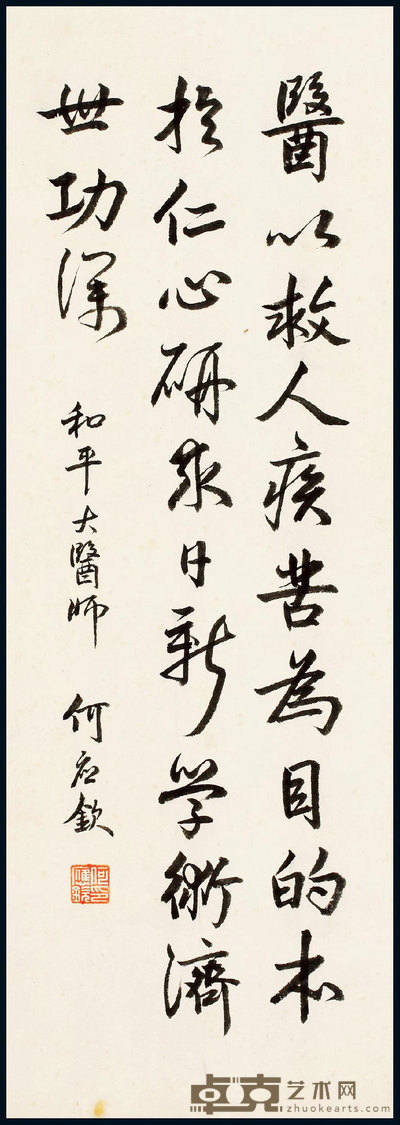 醫以救人疾苦為目的本
於仁心研求日新学術濟
世功深
和平大醫師 何应欽
何應欽印
卓克艺术网
zhuokearts.com